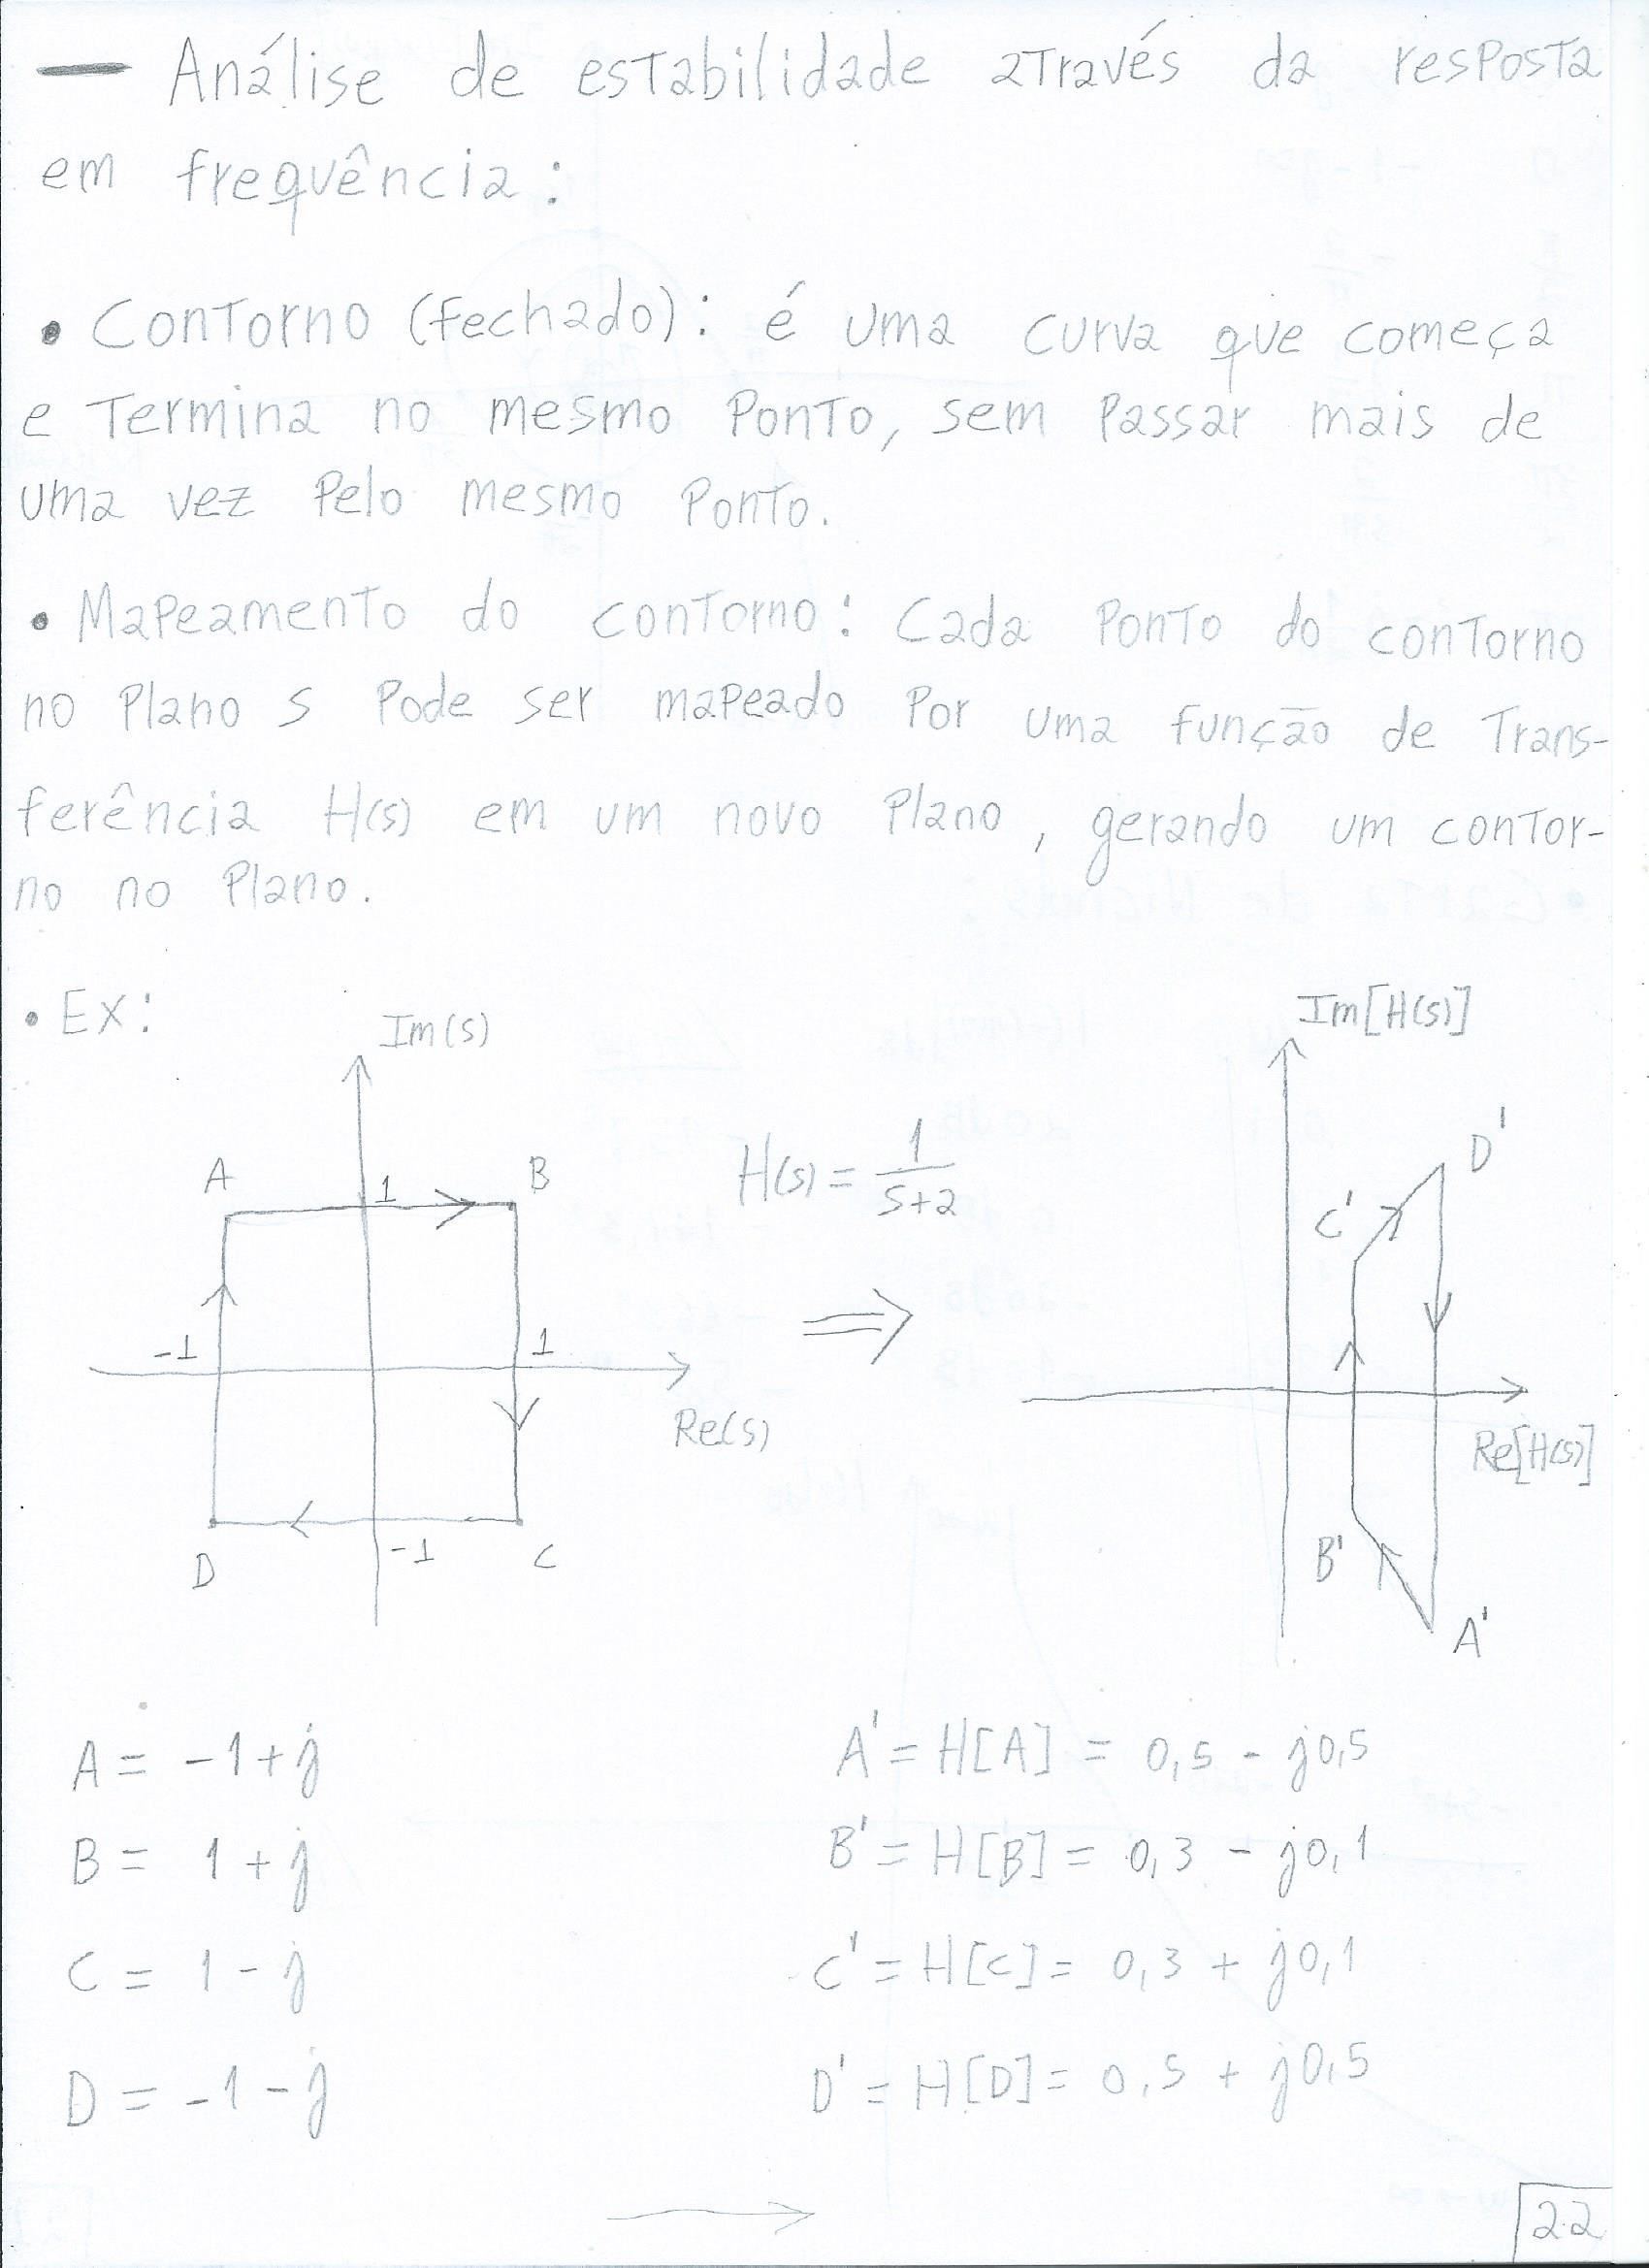 — Análise de estabilidade através da resposta
em frequência:
• Contorno (fechado): é uma curva que começa
e termina no mesmo ponto, sem passar mais de
uma vez pelo mesmo ponto.
• Mapeamento do contorno: Cada ponto do contorno
no plano s pode ser mapeado por uma função de trans-
ferência H(s) em um novo plano, gerando um contor-
no no plano.
• Ex:
Im(s)
A
1
B
-1
1
Re(s)
D
-1
C
H(s) = 1/(s+2)
⇒
Im[H(s)]
D'
C'
Re[H(s)]
B'
A'
A = -1+j
A' = H[A] = 0,5 - j0,5
B = 1+j
B' = H[B] = 0,3 - j0,1
C = 1-j
C' = H[C] = 0,3 + j0,1
D = -1-j
D' = H[D] = 0,5 + j0,5
22